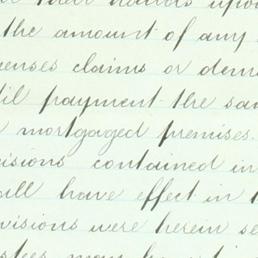 their
the amount of any
enses claims or dem
til payment the sa
mortgaged premises.
isions contained in
ill have effect in
visions were herein se